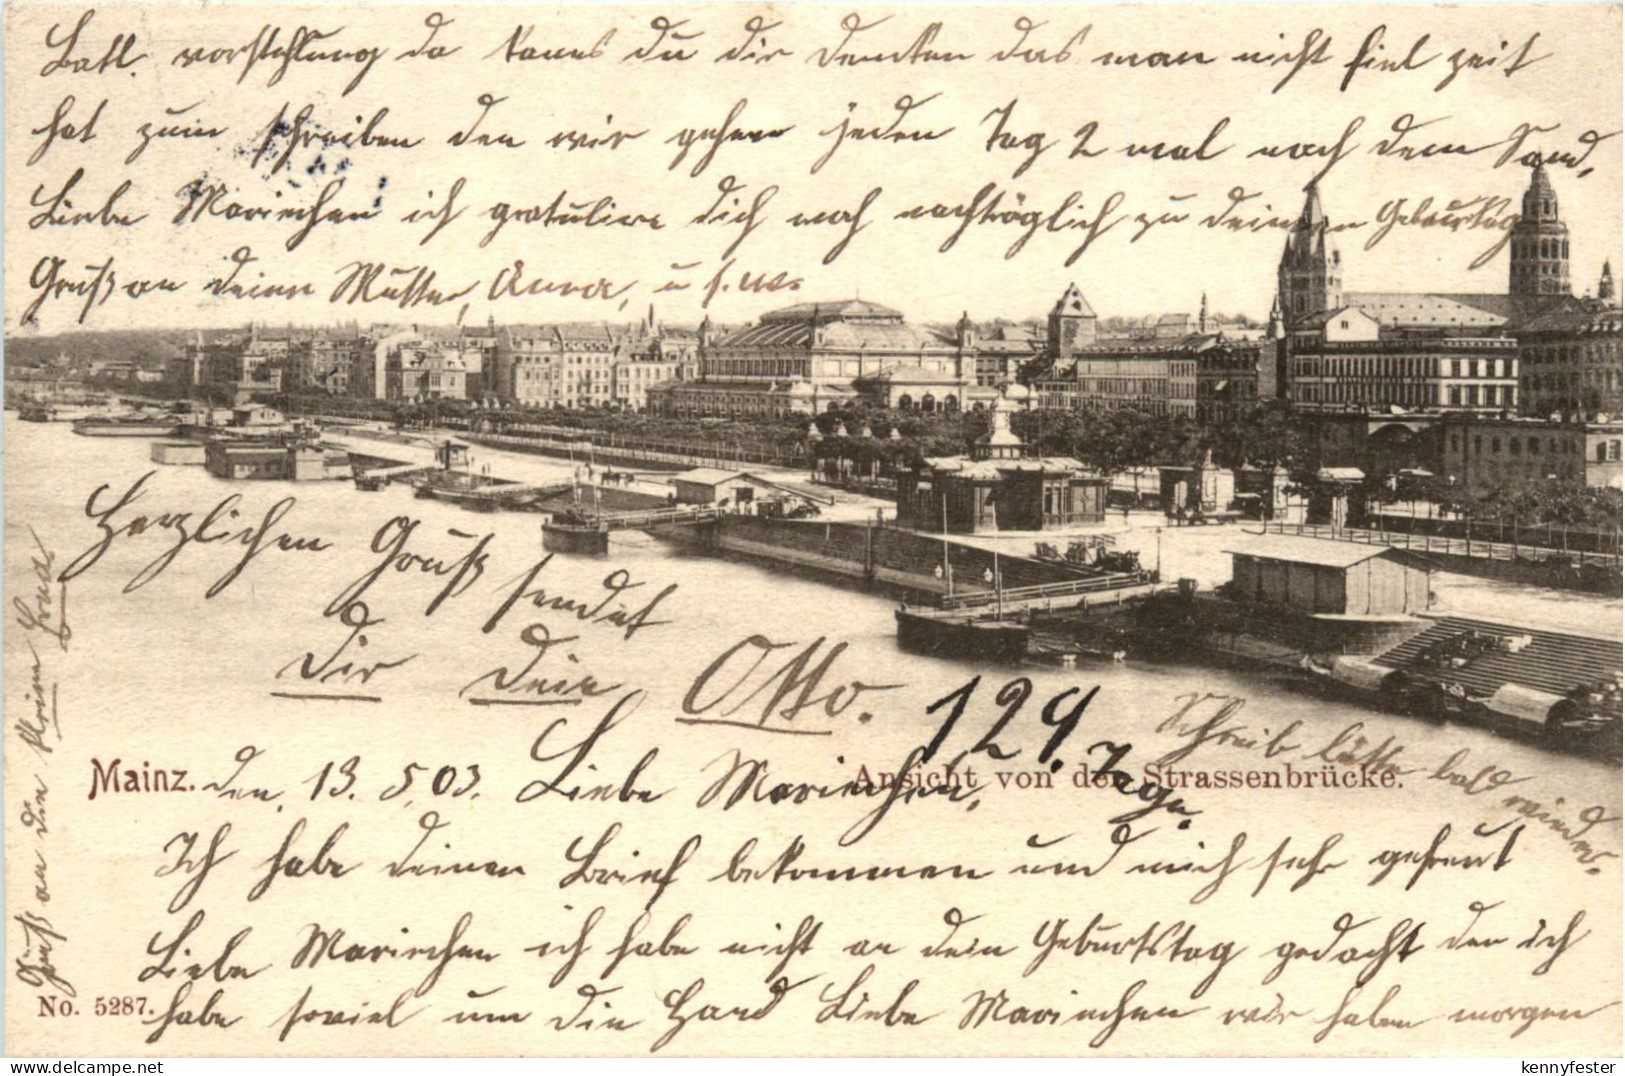 Mainz. den, 13. 5. 03. Liebe Mariechen,
Ansicht von der Strassenbrücke.
Ich habe deinen Brief bekommen und mich sehr gefreut
Liebe Mariechen ich habe nicht an dein Geburtstag gedacht den ich
habe soviel um die Hand Liebe Mariechen wir haben morgen
Batl. vorstehlung da kans du dir denken das man nicht fiel zeit
hat zum schreiben den wir gehen jeden Tag 2 mal nach dem Sand,
Liebe Mariechen ich gratulire dich noch nachträglich zu deinen Geburtstag
Gruß an deine Mutter, Anna, u. s. w.
Herzlichen Gruß sendet
Dir Dein Otto.
129.
Schreib bitte bald wieder.
Gruß an den kleinen
No. 5287.
kennyfester